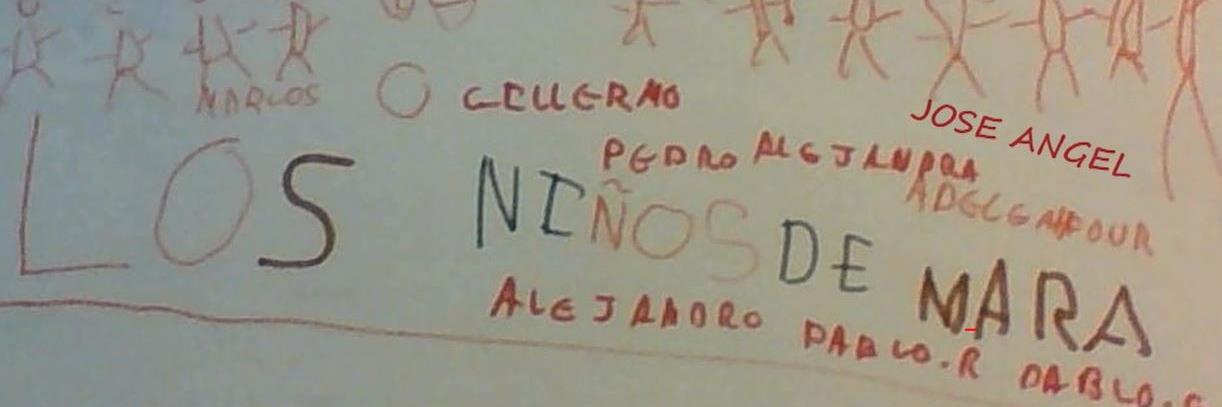 MARCOS
GEUERMO
JOSE ANGEL
PEDRO ALEJANDRA
LOS NIÑOS DE MARA
ALEJANDRO
PABLO.R PABLO.